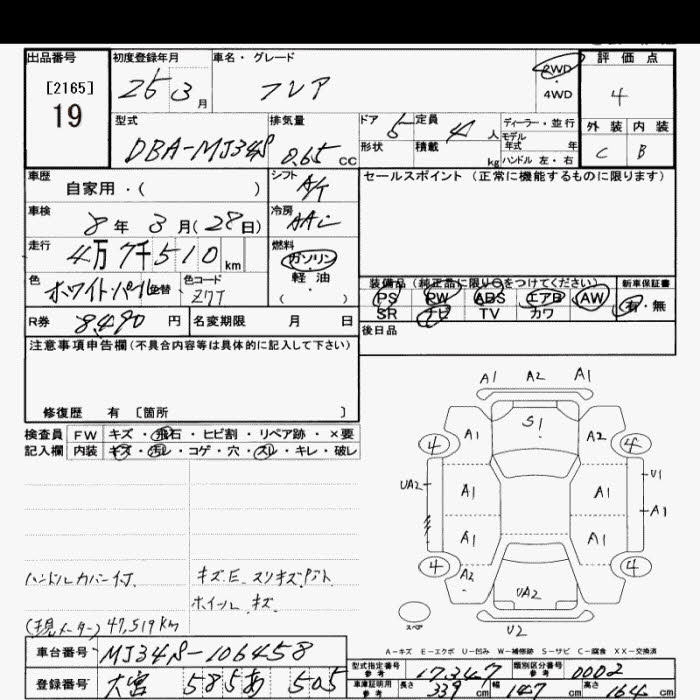 出品番号 初度登録年月 車名・グレード 2WD 評価点
[2165] 25 3月 フレア 4WD 4
19 型式 排気量 ドア 5 定員 4人 ディーラー・並行 外装 内装
DBA-MJ34S 0.65 CC 形状 積載 kg モデル年式 年 C B
ハンドル 左・右
車歴 自家用・( ) シフト A/T セールスポイント (正常に機能するものに限ります)
車検 8年 3月(28日) 冷房 AAC
走行 4万7千510km 燃料 ガソリン
軽油
( )
色 ホワイトパール 色替 色コード Z7T
装備品 (純正品に限り○をつけてください) 新車保証書
PS PW ABS エアB AW 有・無
SR ナビ TV カワ
R券 8,490円 名変期限 月 日 後日品
注意事項申告欄(不具合内容等は具体的に記入して下さい)
修復歴 有 [箇所 ]
検査員 FW キズ・飛石・ヒビ割・リペア跡・×要
記入欄 内装 キズ・汚レ・コゲ・穴・スレ・キレ・破レ
A1 A2 A1
S1
4 A1 A2 4
UA2 A1 A1 U1
A1 A1 A1
4 A2 4
UA2
スペア U2
ハンドルカバー付 キズE スリキズ
ホイール キズ
(現メーター) 47,519km
A-キズ E-エクボ U-凹み W-補修跡 S-サビ C-腐食 XX-交換済
車台番号 MJ34S-106458
型式指定番号 参考 17347 類別区分番号 参考 0002
登録番号 大宮 585あ 505
車庫証明用 参考 長さ 339cm 幅 147cm 高さ 164cm